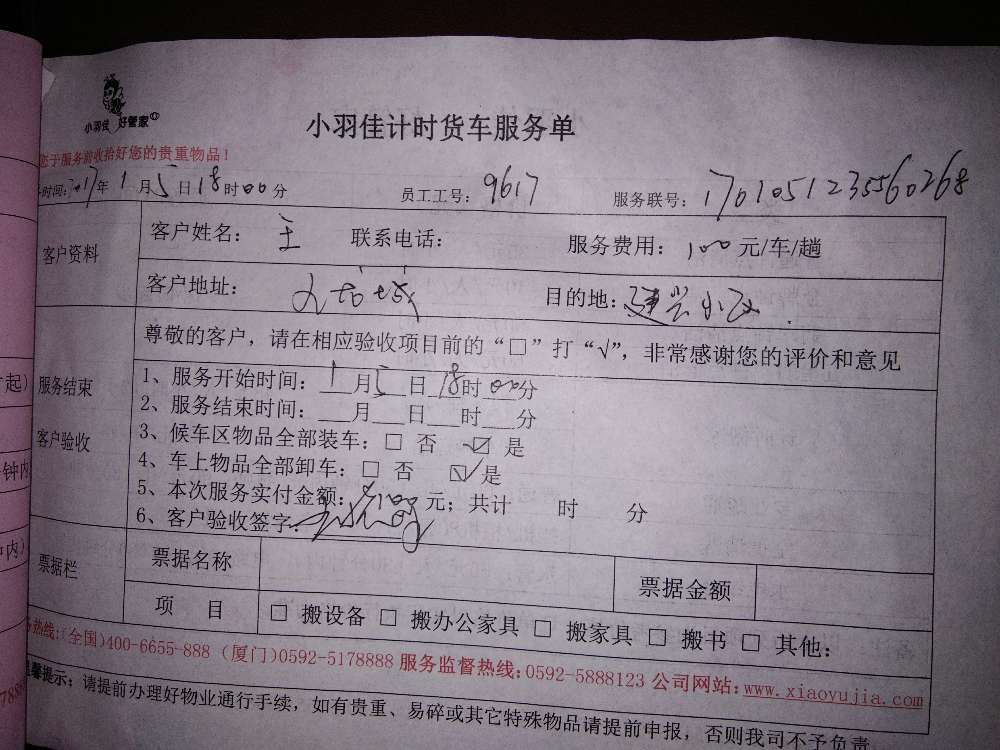 小羽佳 好管家
小羽佳计时货车服务单
您于服务前收拾好您的贵重物品！
时间：2017年1月5日18时00分 员工工号：9617 服务联号：1701051235560268
客户资料
客户姓名： 王 联系电话： 服务费用：100元/车/趟
客户地址： 目的地：建兴小区
服务结束
客户验收
尊敬的客户，请在相应验收项目前的“□”打“√”，非常感谢您的评价和意见
1、服务开始时间：1月5日18时00分
2、服务结束时间：___月___日___时___分
3、候车区物品全部装车：□ 否 ☑ 是
4、车上物品全部卸车：□ 否 ☑ 是
5、本次服务实付金额： 元；共计 时 分
6、客户验收签字：
票据栏
票据名称 票据金额
项 目 □ 搬设备 □ 搬办公家具 □ 搬家具 □ 搬书 □ 其他：
热线：(全国)400-6655-888 (厦门)0592-5178888 服务监督热线：0592-5888123 公司网站：www.xiaoyujia.com
温馨提示：请提前办理好物业通行手续，如有贵重、易碎或其它特殊物品请提前申报，否则我司不予负责
起）
钟内
内）